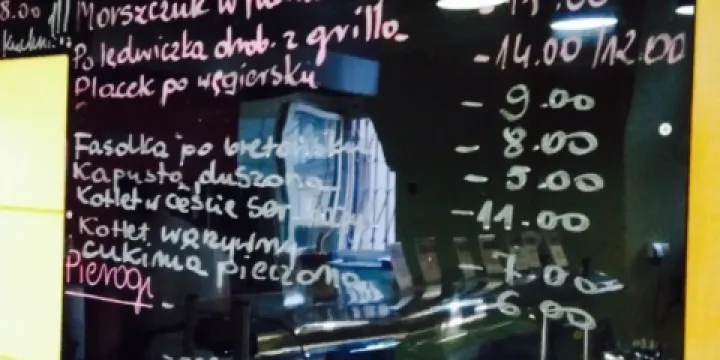 8.00 Morszczuk w
Polędwiczka drob. z grilla - 14.00/12.00
Placek po węgiersku - 9.00
Fasolka po bretońsku - 8.00
Kapusta duszona - 5.00
Kotlet w cieście ser - 11.00
Kotlet warzywny - 7.00
cukinia pieczona - 6.00
Pierogi -